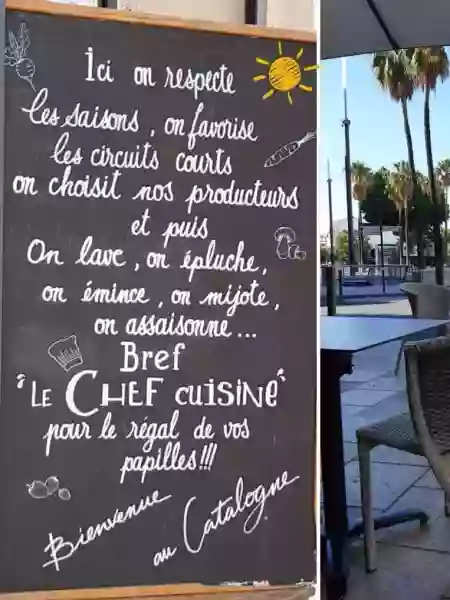 Ici on respecte
les saisons, on favorise
les circuits courts
on choisit nos producteurs
et puis
On lave, on épluche,
on émince, on mijote,
on assaisonne...
Bref
"LE CHEF CUISINE"
pour le régal de vos
papilles!!!
Bienvenue
au Catalogne